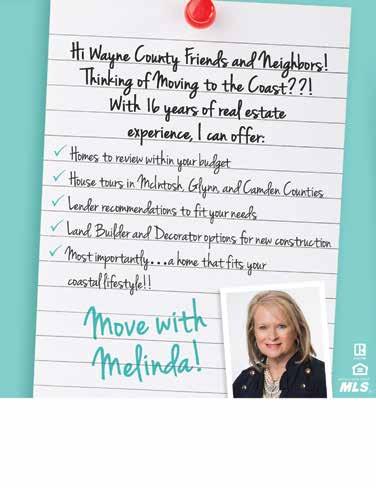 Hi Wayne County Friends and Neighbors!
Thinking of Moving to the Coast??!
With 16 years of real estate
experience, I can offer:
✓ Homes to review within your budget
✓ House tours in McIntosh, Glynn, and Camden Counties
✓ Lender recommendations to fit your needs
✓ Land, Builder and Decorator options for new construction
✓ Most importantly...a home that fits your
coastal lifestyle!!
Move with
Melinda!
R
MLS